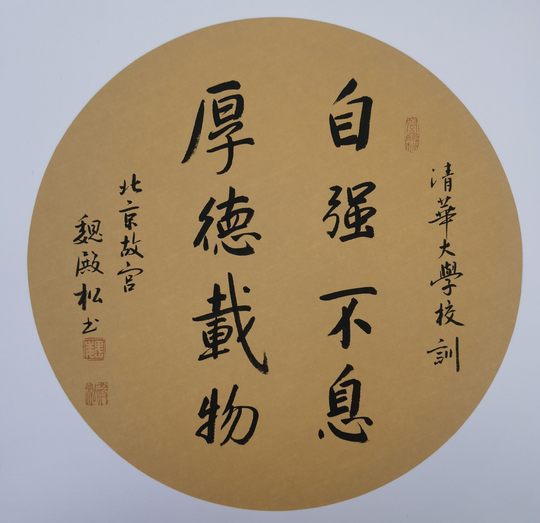 清華大學校訓
自强不息
厚德載物
北京故宮
魏殿松书